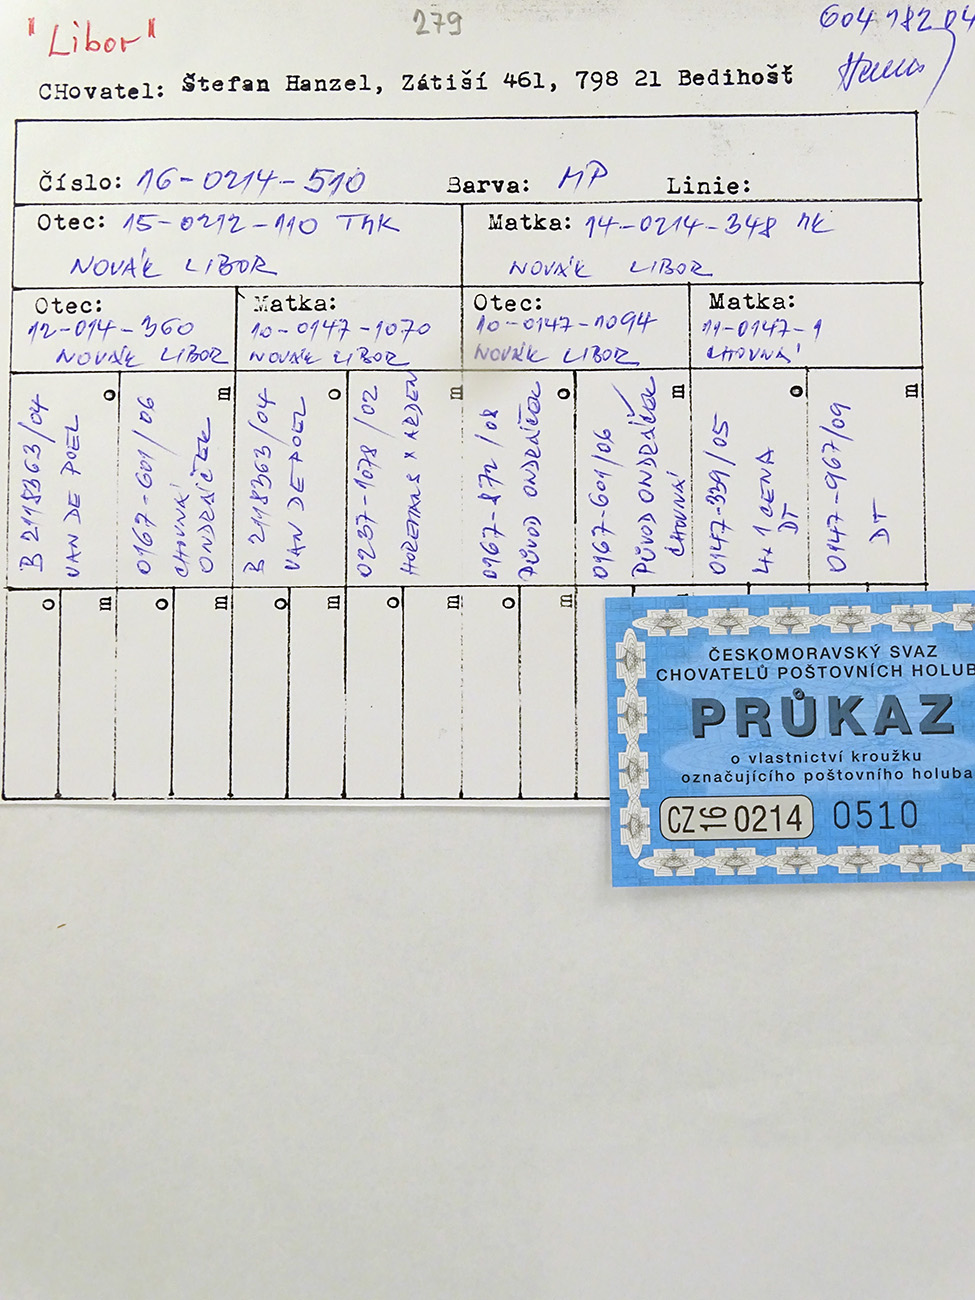 "Libor"
279
604 182 04
CHovatel: Štefan Hanzel, Zátiší 461, 798 21 Bedihošť
Číslo: 16-0214-510 Barva: MP Linie:
Otec: 15-0212-110 TMK
NOVÁK LIBOR
Matka: 14-0214-348 MK
NOVÁK LIBOR
Otec:
12-014-360
NOVÁK LIBOR
Matka:
10-0147-1070
NOVÁK LIBOR
Otec:
10-0147-1094
NOVÁK LIBOR
Matka:
11-0147-1
CHOVNÁ
o
B 2118363/04
VAN DE POEL
m
0167-601/06
CHOVNÁ
ONDRÁČEK
o
B 2118363/04
VAN DE POEL
m
0237-1078/02
HOREMANS X ARDEN
o
0967-872/08
PŮVOD ONDRÁČEK
m
0967-601/06
PŮVOD ONDRÁČEK
CHOVNÁ
o
0147-339/05
4x 1 CENA
DT
m
0147-967/09
DT
o m o m o m o m o m
ČESKOMORAVSKÝ SVAZ
CHOVATELŮ POŠTOVNÍCH HOLUB
PRŮKAZ
o vlastnictví kroužku
označujícího poštovního holuba
CZ 16 0214 0510